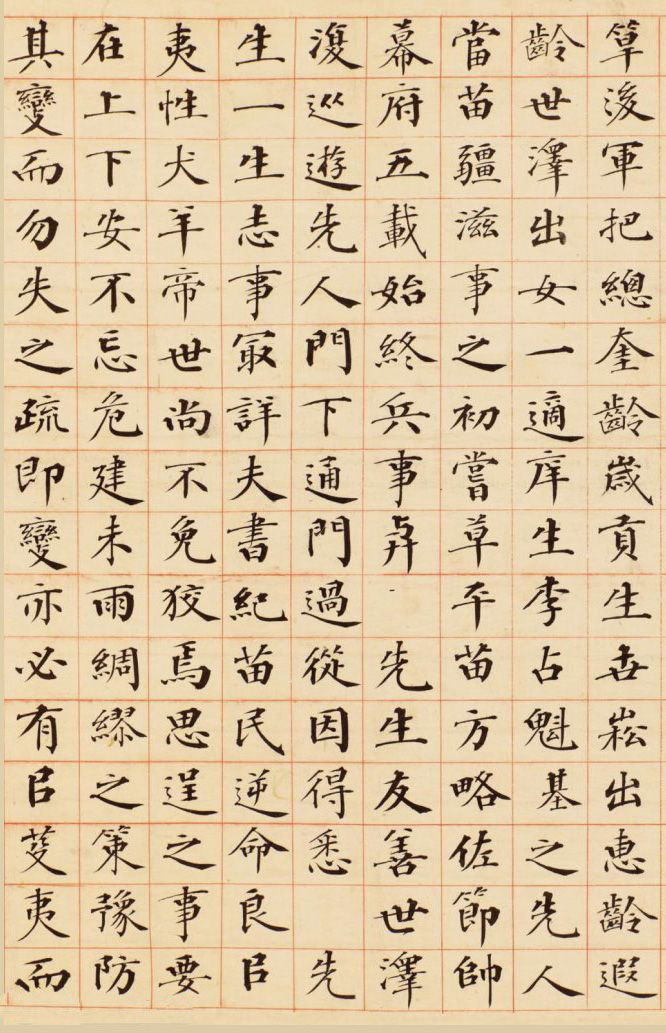 草後軍把總奎齡歲貢生世崧出惠齡遐
齡世澤出女一適庠生李占魁基之先人
當苗疆滋事之初嘗草平苗方略佐節帥
幕府五載始終兵事與 先生友善世澤
復巡遊先人門下通門過從因得悉 先
生一生志事㝡詳夫書紀苗民逆命良㠯
夷性犬羊帝世尚不免狡焉思逞之事要
在上下安不忘危建未雨綢繆之策豫防
其變而勿失之疏即變亦必有㠯芟夷而